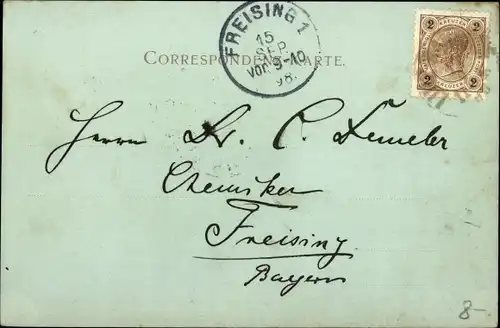 FREISING 1
15
SEP.
VOR. 9-10
98.
2 KREUZER 2
2 KREUZER 2
CORRESPONDENZ-KARTE.
Herrn Dr. C.
Chemiker
Freising
Bayern
8-